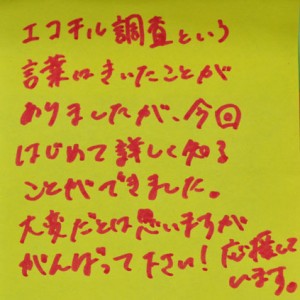 エコチル調査という
言葉はきいたことが
ありましたが、今回
はじめて詳しく知る
ことができました。
大変だとは思いますが
がんばって下さい！応援して
います。